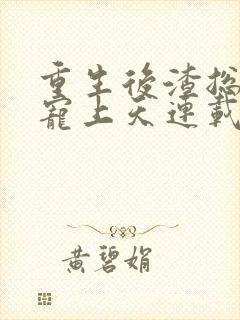 重生後渣總
寵上天連載
黃碧娟